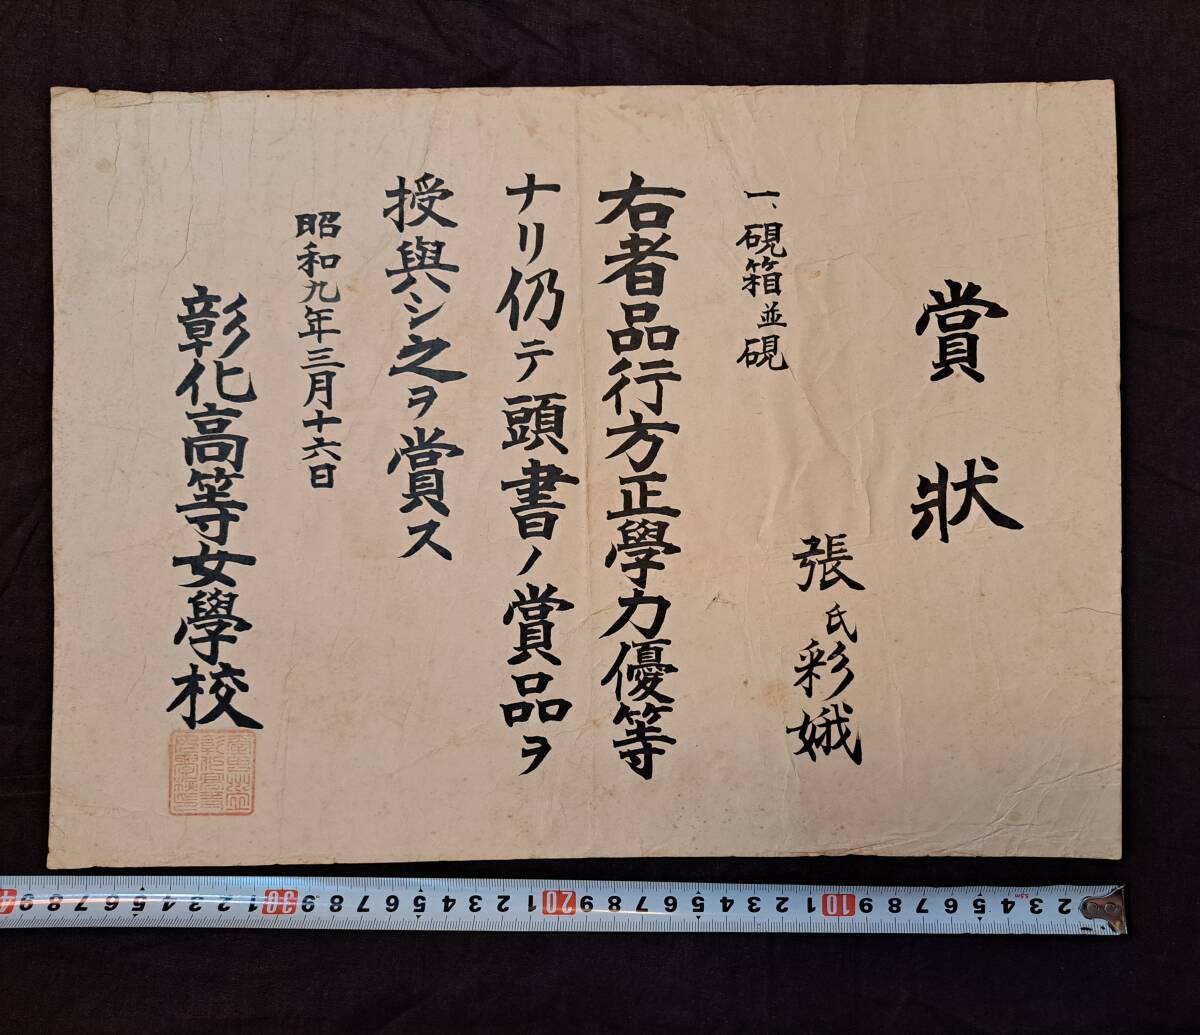 賞狀
張氏彩娥
一、硯箱並硯
右者品行方正學力優等
ナリ仍テ頭書ノ賞品ヲ
授與シ之ヲ賞ス
昭和九年三月十六日
彰化高等女學校
2 3 4 5 6 7 8 9 10 1 2 3 4 5 6 7 8 9 20 1 2 3 4 5 6 7 8 9 30 1 2 3 4 5 6 7 8 9 4